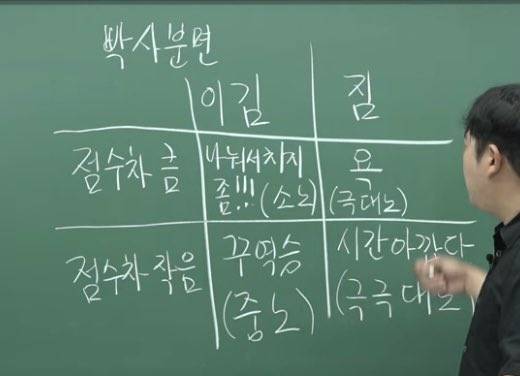 박사분면
이김 짐
점수차 큼 나눠서 차지 요
좀!!! (소노) (극대노)
점수차 작음 꾸역승 시간아깝다
(중노) (극극대노)